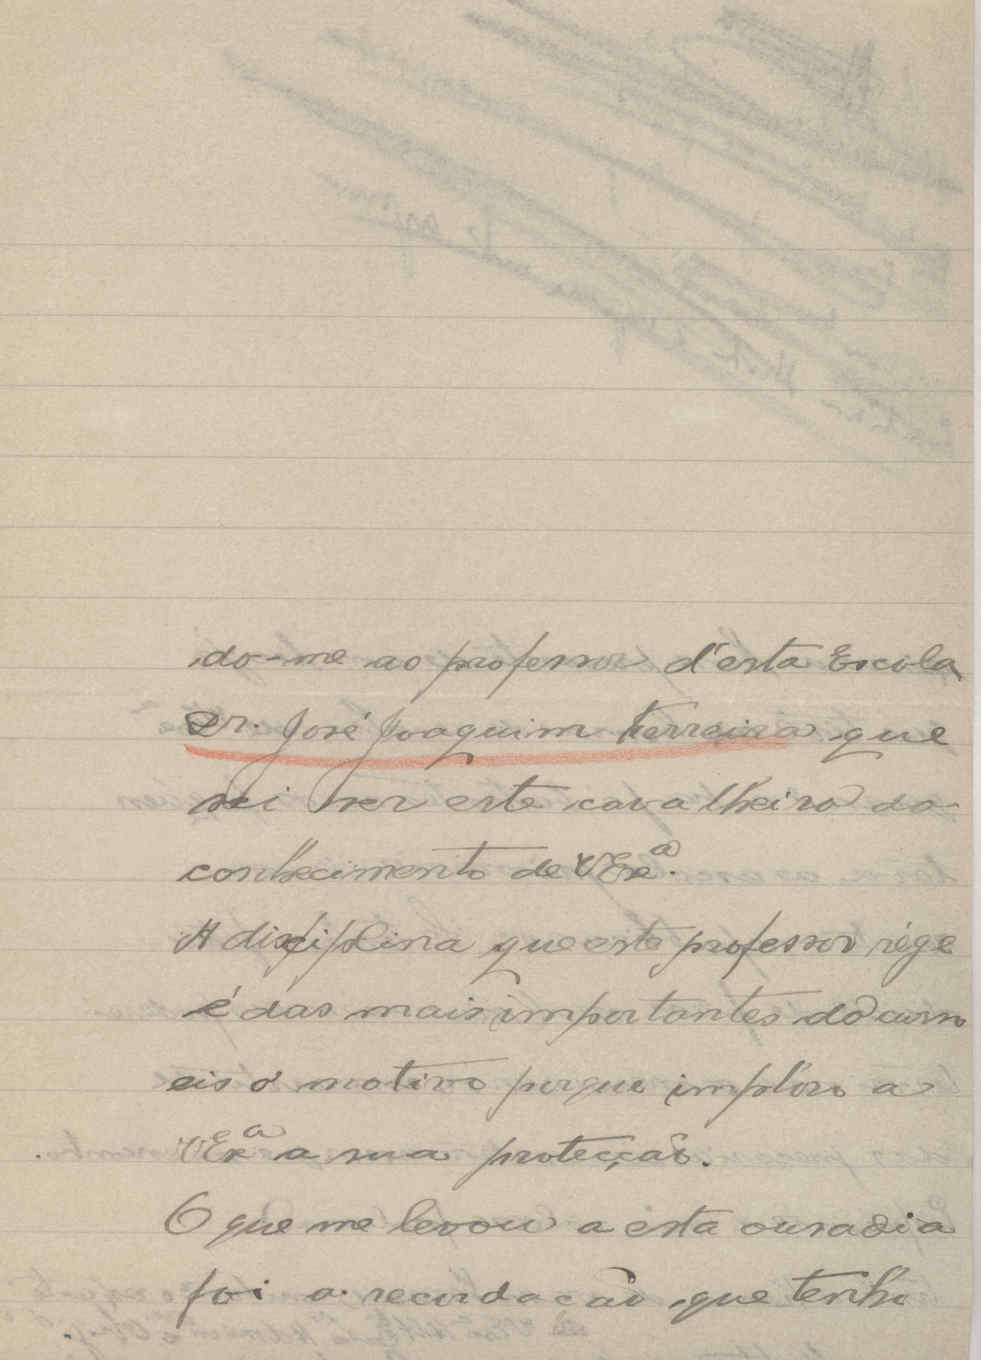 do-me ao professor d'esta Escola
Sr. José Joaquim Ferreira que
sei ser este cavalheiro do
conhecimento de VExª.
A disciplina que este professor rége
é das mais importantes do curso
eis o motivo porque implóro a
VExª a sua protecção.
O que me levou a esta ousadia
foi a recordação que tenho